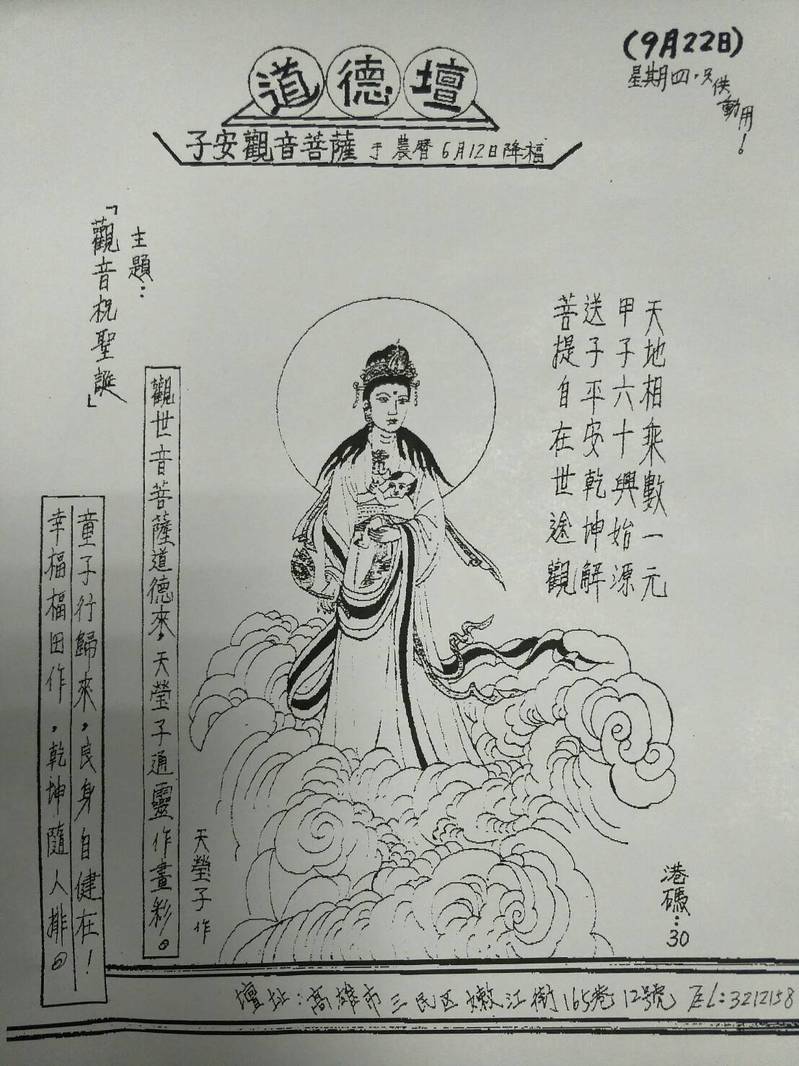 (9月22日)
星期四,只供動用!
道德壇
子安觀音菩薩 于農曆6月12日降福
主題:
「觀音祝聖誕」
天地相乘數一元
甲子六十興始源
送子平安乾坤解
菩提自在世途觀
觀世音菩薩道德來,天瑩子通靈作畫彩。
童子行歸來,良身自健在!
幸福福田作,乾坤隨人排。
天瑩子作
港碼:30
壇址:高雄市三民区嫩江街165巷12號 TEL:3212158